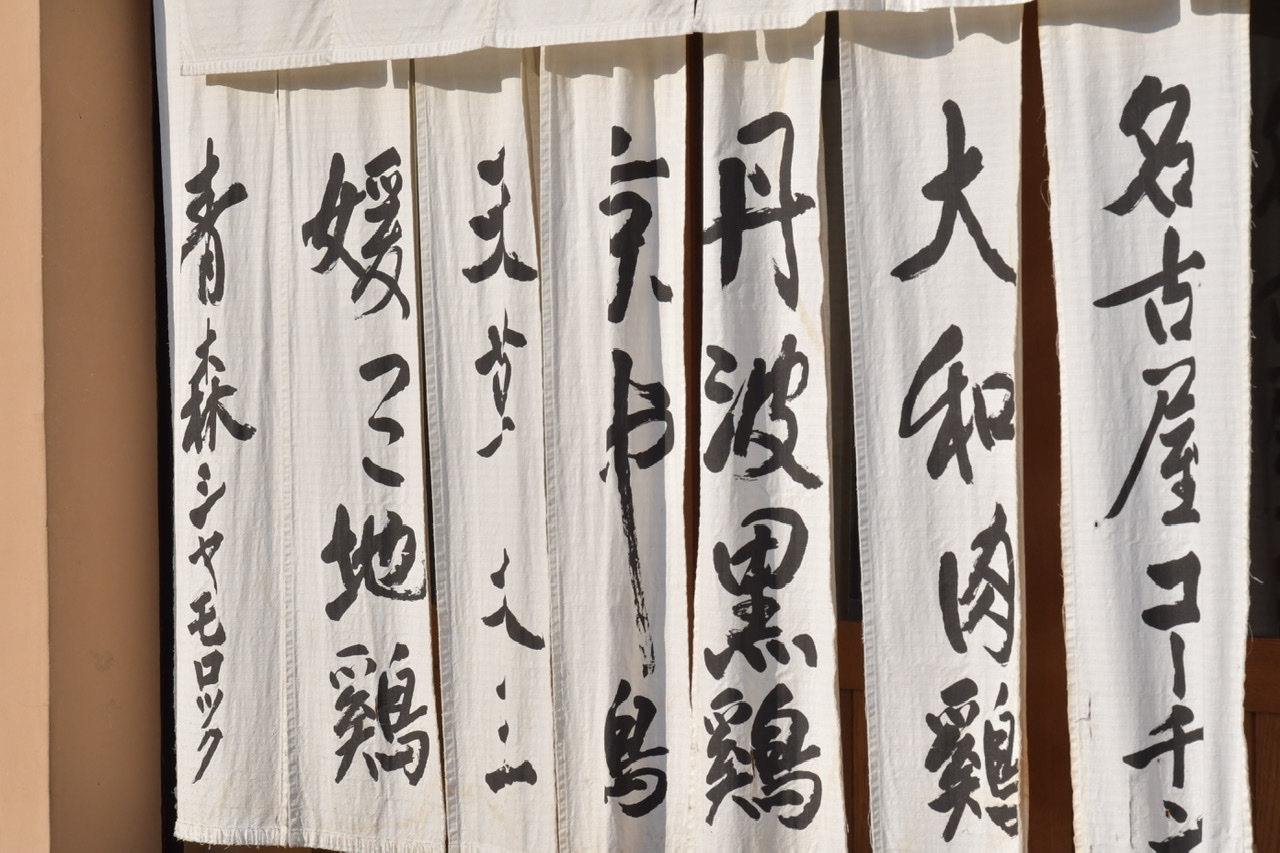 名古屋コーチン
大和肉鶏
丹波黒鶏
媛っこ地鶏
青森シャモロック